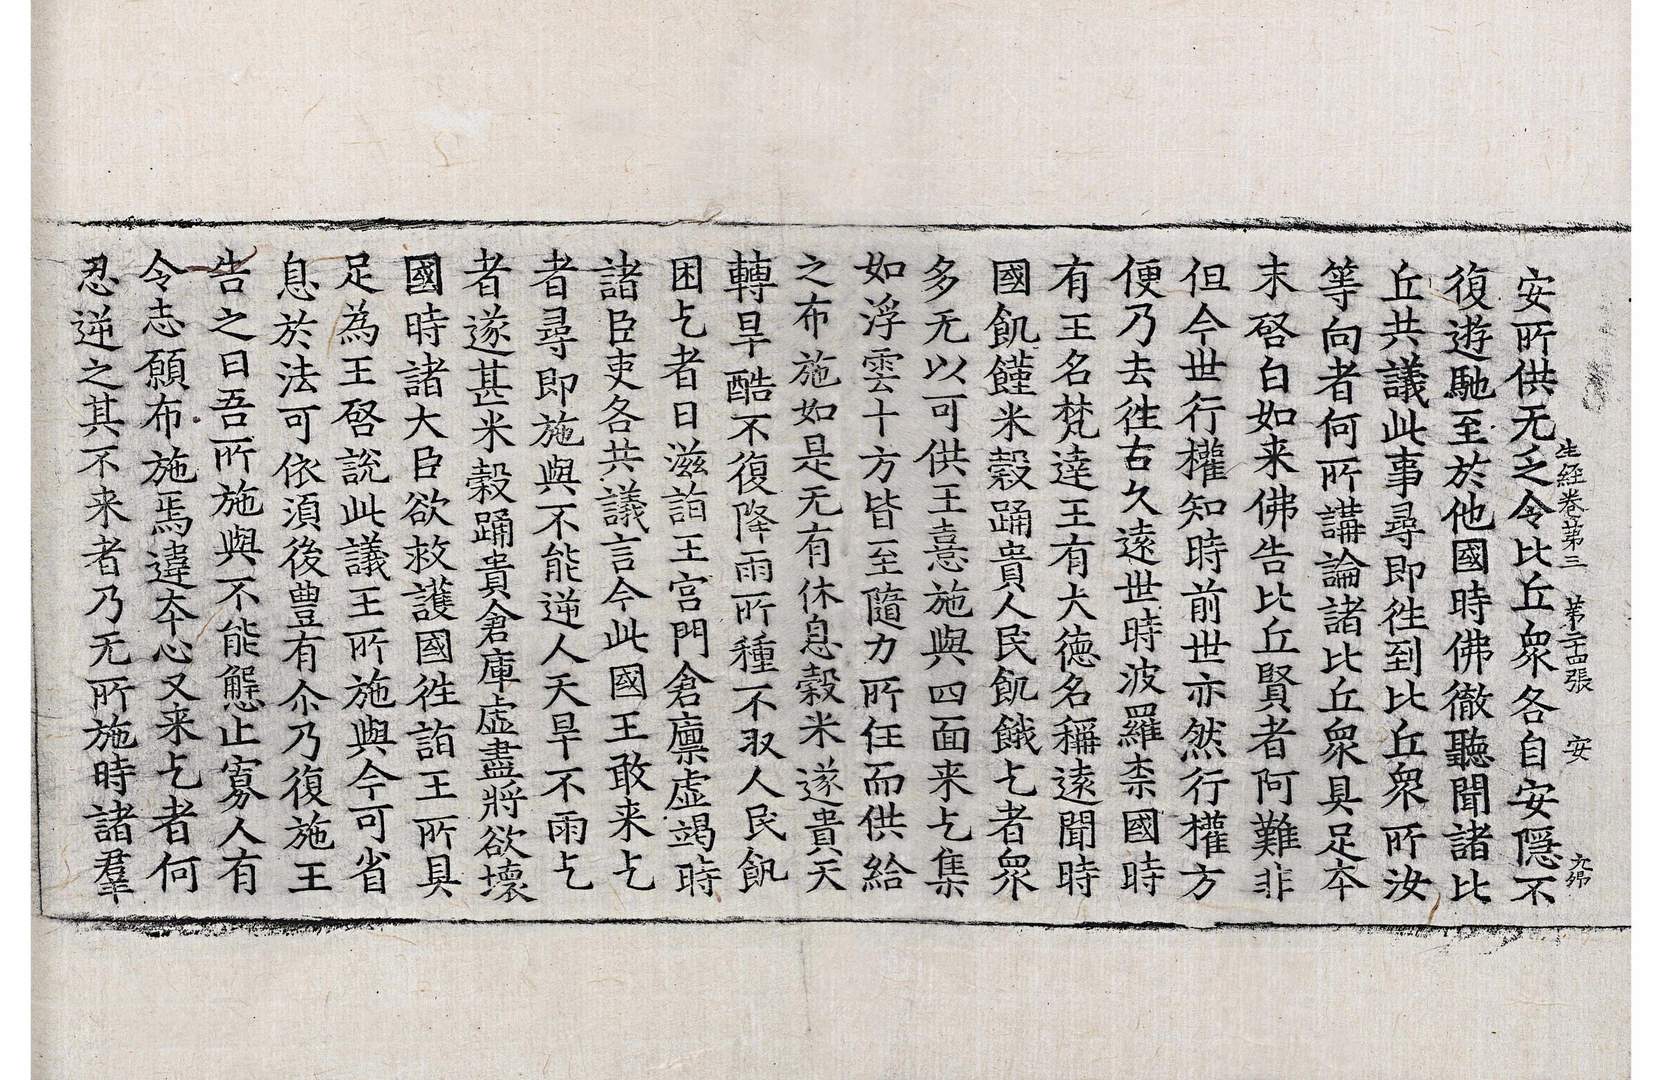 生經卷第三 第二十四張 安 九昴
安所供无乏令比丘衆各自安隱不
復遊馳至於他國時佛徹聽聞諸比
丘共議此事尋即徃到比丘衆所汝
等向者何所講論諸比丘衆具足夲
末啓白如来佛告比丘賢者阿難非
但今世行權知時前世亦然行權方
便乃去徃古久遠世時波羅柰國時
有王名梵達王有大德名稱遠聞時
國飢饉米穀踊貴人民飢餓乞者衆
多无以可供王憙施與四面来乞集
如浮雲十方皆至隨力所任而供給
之布施如是无有休息穀米遂貴天
轉旱酷不復降雨所種不収人民飢
困乞者日滋詣王宮門倉廪虚竭時
諸臣吏各共議言今此國王敢来乞
者尋即施與不能逆人天旱不雨乞
者遂甚米穀踊貴倉庫虚盡將欲壞
國時諸大臣欲救護國徃詣王所具
足為王啓說此議王所施與今可省
息於法可依須後豊有尒乃復施王
告之曰吾所施與不能懈止寡人有
令志願布施焉違夲心又来乞者何
忍逆之其不来者乃无所施時諸羣